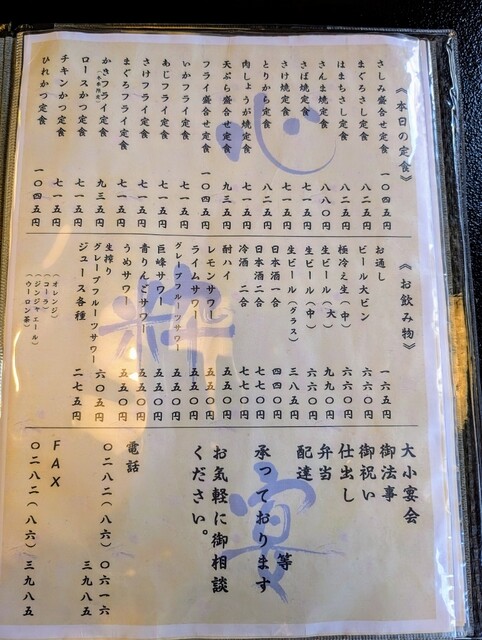 《本日の定食》
さしみ盛合せ定食 一〇四五円
まぐろさし定食 八二五円
はまちさし定食 八二五円
さんま焼定食 八八〇円
さば焼定食 七一五円
さけ焼定食 七一五円
とりから定食 八二五円
肉しょうが焼定食 七一五円
天ぷら盛合せ定食 九三五円
フライ盛合せ定食 一〇四五円
いかフライ定食 七一五円
あじフライ定食 七一五円
さけフライ定食 七一五円
まぐろフライ定食 七一五円
かきフライ定食 九三五円
ロースかつ定食 七一五円
チキンかつ定食 七一五円
ひれかつ定食 一〇四五円
心
《お飲み物》
お通し 一六五円
ビール大ビン 六六〇円
極冷え生（中） 六六〇円
生ビール（大） 九九〇円
生ビール（中） 六六〇円
生ビール（グラス） 三八五円
日本酒一合 四四〇円
日本酒二合 七七〇円
冷酒 二合 七七〇円
酎ハイ 五五〇円
レモンサワー 五五〇円
ライムサワー 五五〇円
グレープフルーツサワー 五五〇円
巨峰サワー 五五〇円
青りんごサワー 五五〇円
うめサワー 五五〇円
生搾り
グレープフルーツサワー 六〇五円
ジュース各種 二七五円
（オレンジ）
（コーラ）
（ジンジャエール）
（ウーロン茶）
粋
大小宴会
御法事
御祝い
仕出し
弁当
配達
等
承っております
お気軽に御相談
ください。
宴
電話
〇二八二（八六）〇六一六
三九八五
ＦＡＸ
〇二八二（八六）三九八五